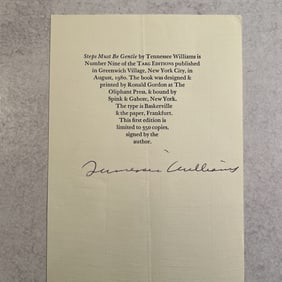 Steps Must Be Gentle by Tennessee Williams is
Number Nine of the TARG EDITIONS published
in Greenwich Village, New York City, in
August, 1980. The book was designed &
printed by Ronald Gordon at The
Oliphant Press, & bound by
Spink & Gaborc, New York.
The type is Baskerville
& the paper, Frankfurt.
This first edition is
limited to 350 copies,
signed by the
author.
Tennessee Williams